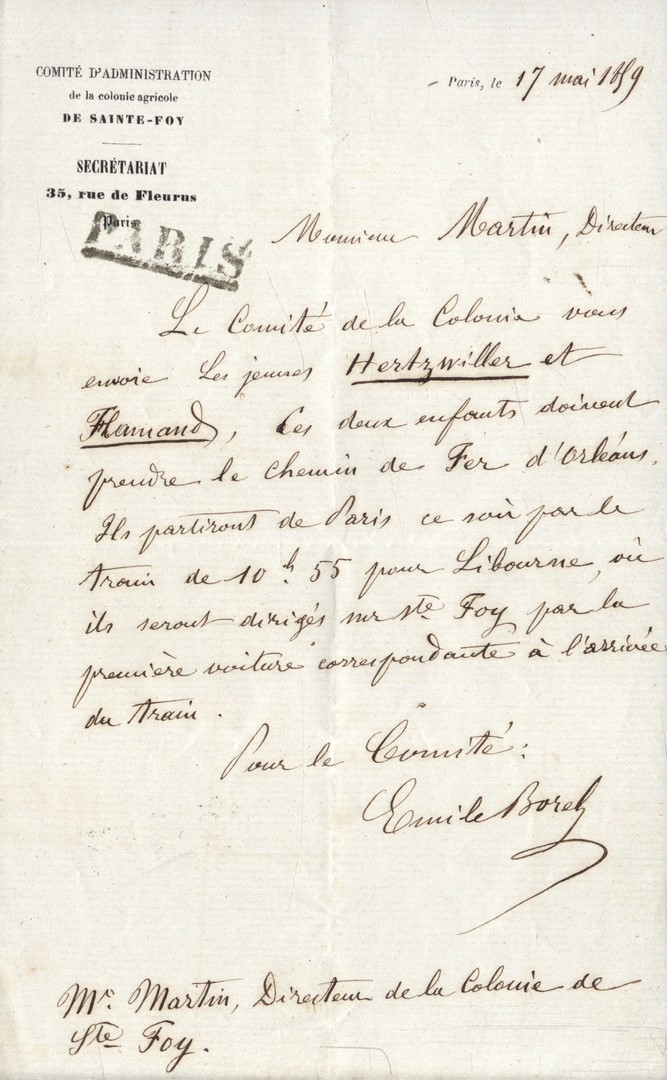 COMITÉ D'ADMINISTRATION
de la colonie agricole
DE SAINTE-FOY
SECRÉTARIAT
35, rue de Fleurus
Paris
PARIS
Paris, le 17 mai 1859
Monsieur Martin, Directeur
Le Comité de la Colonie vous
envoie les jeunes Hertzwiller et
Flamand, Ces deux enfants doivent
prendre le chemin de Fer d'Orléans.
Ils partiront de Paris ce soir par le
train de 10 h. 55 pour Libourne, où
ils seront dirigés sur Ste Foy par la
première voiture correspondante à l'arrivée
du train.
Pour le Comité:
Emile Borel
Mr. Martin, Directeur de la Colonie de
Ste Foy.